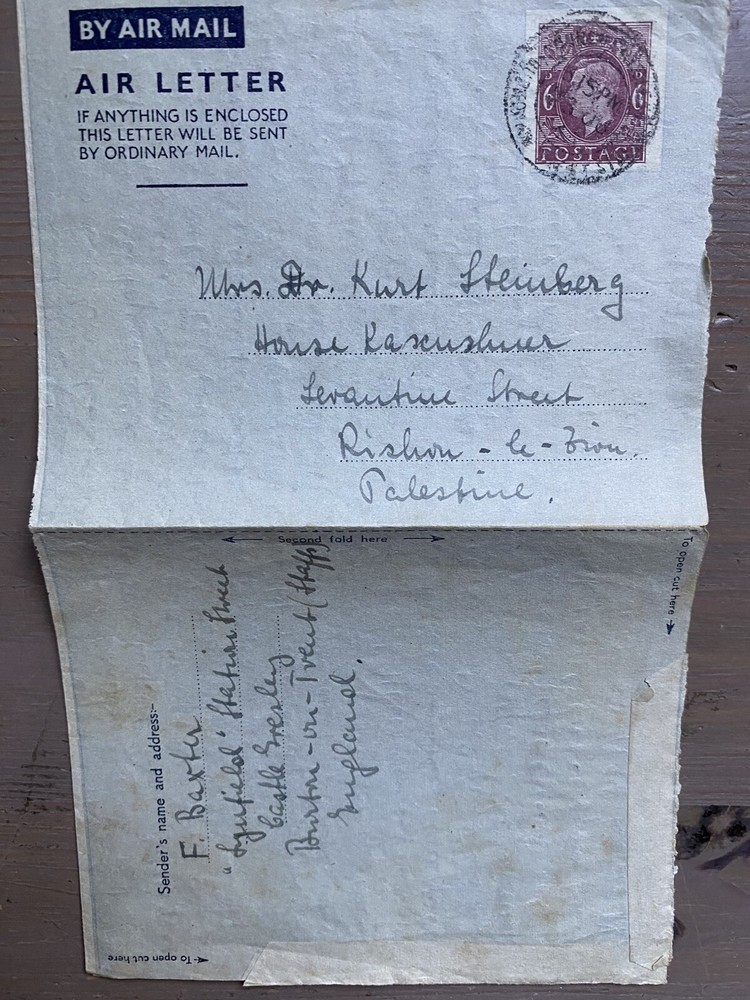 BY AIR MAIL
AIR LETTER
IF ANYTHING IS ENCLOSED
THIS LETTER WILL BE SENT
BY ORDINARY MAIL.
6 D 6 D
POSTAGE
Mrs. Dr. Kurt Steinberg
House
Levantine Street
Rishon - le - Zion.
Palestine.
Second fold here
To open cut here
Sender's name and address:-
F. Baxter
"Lynfield" Station Street
Castle Gresley
Burton - on - Trent (Staffs)
England.
To open cut here